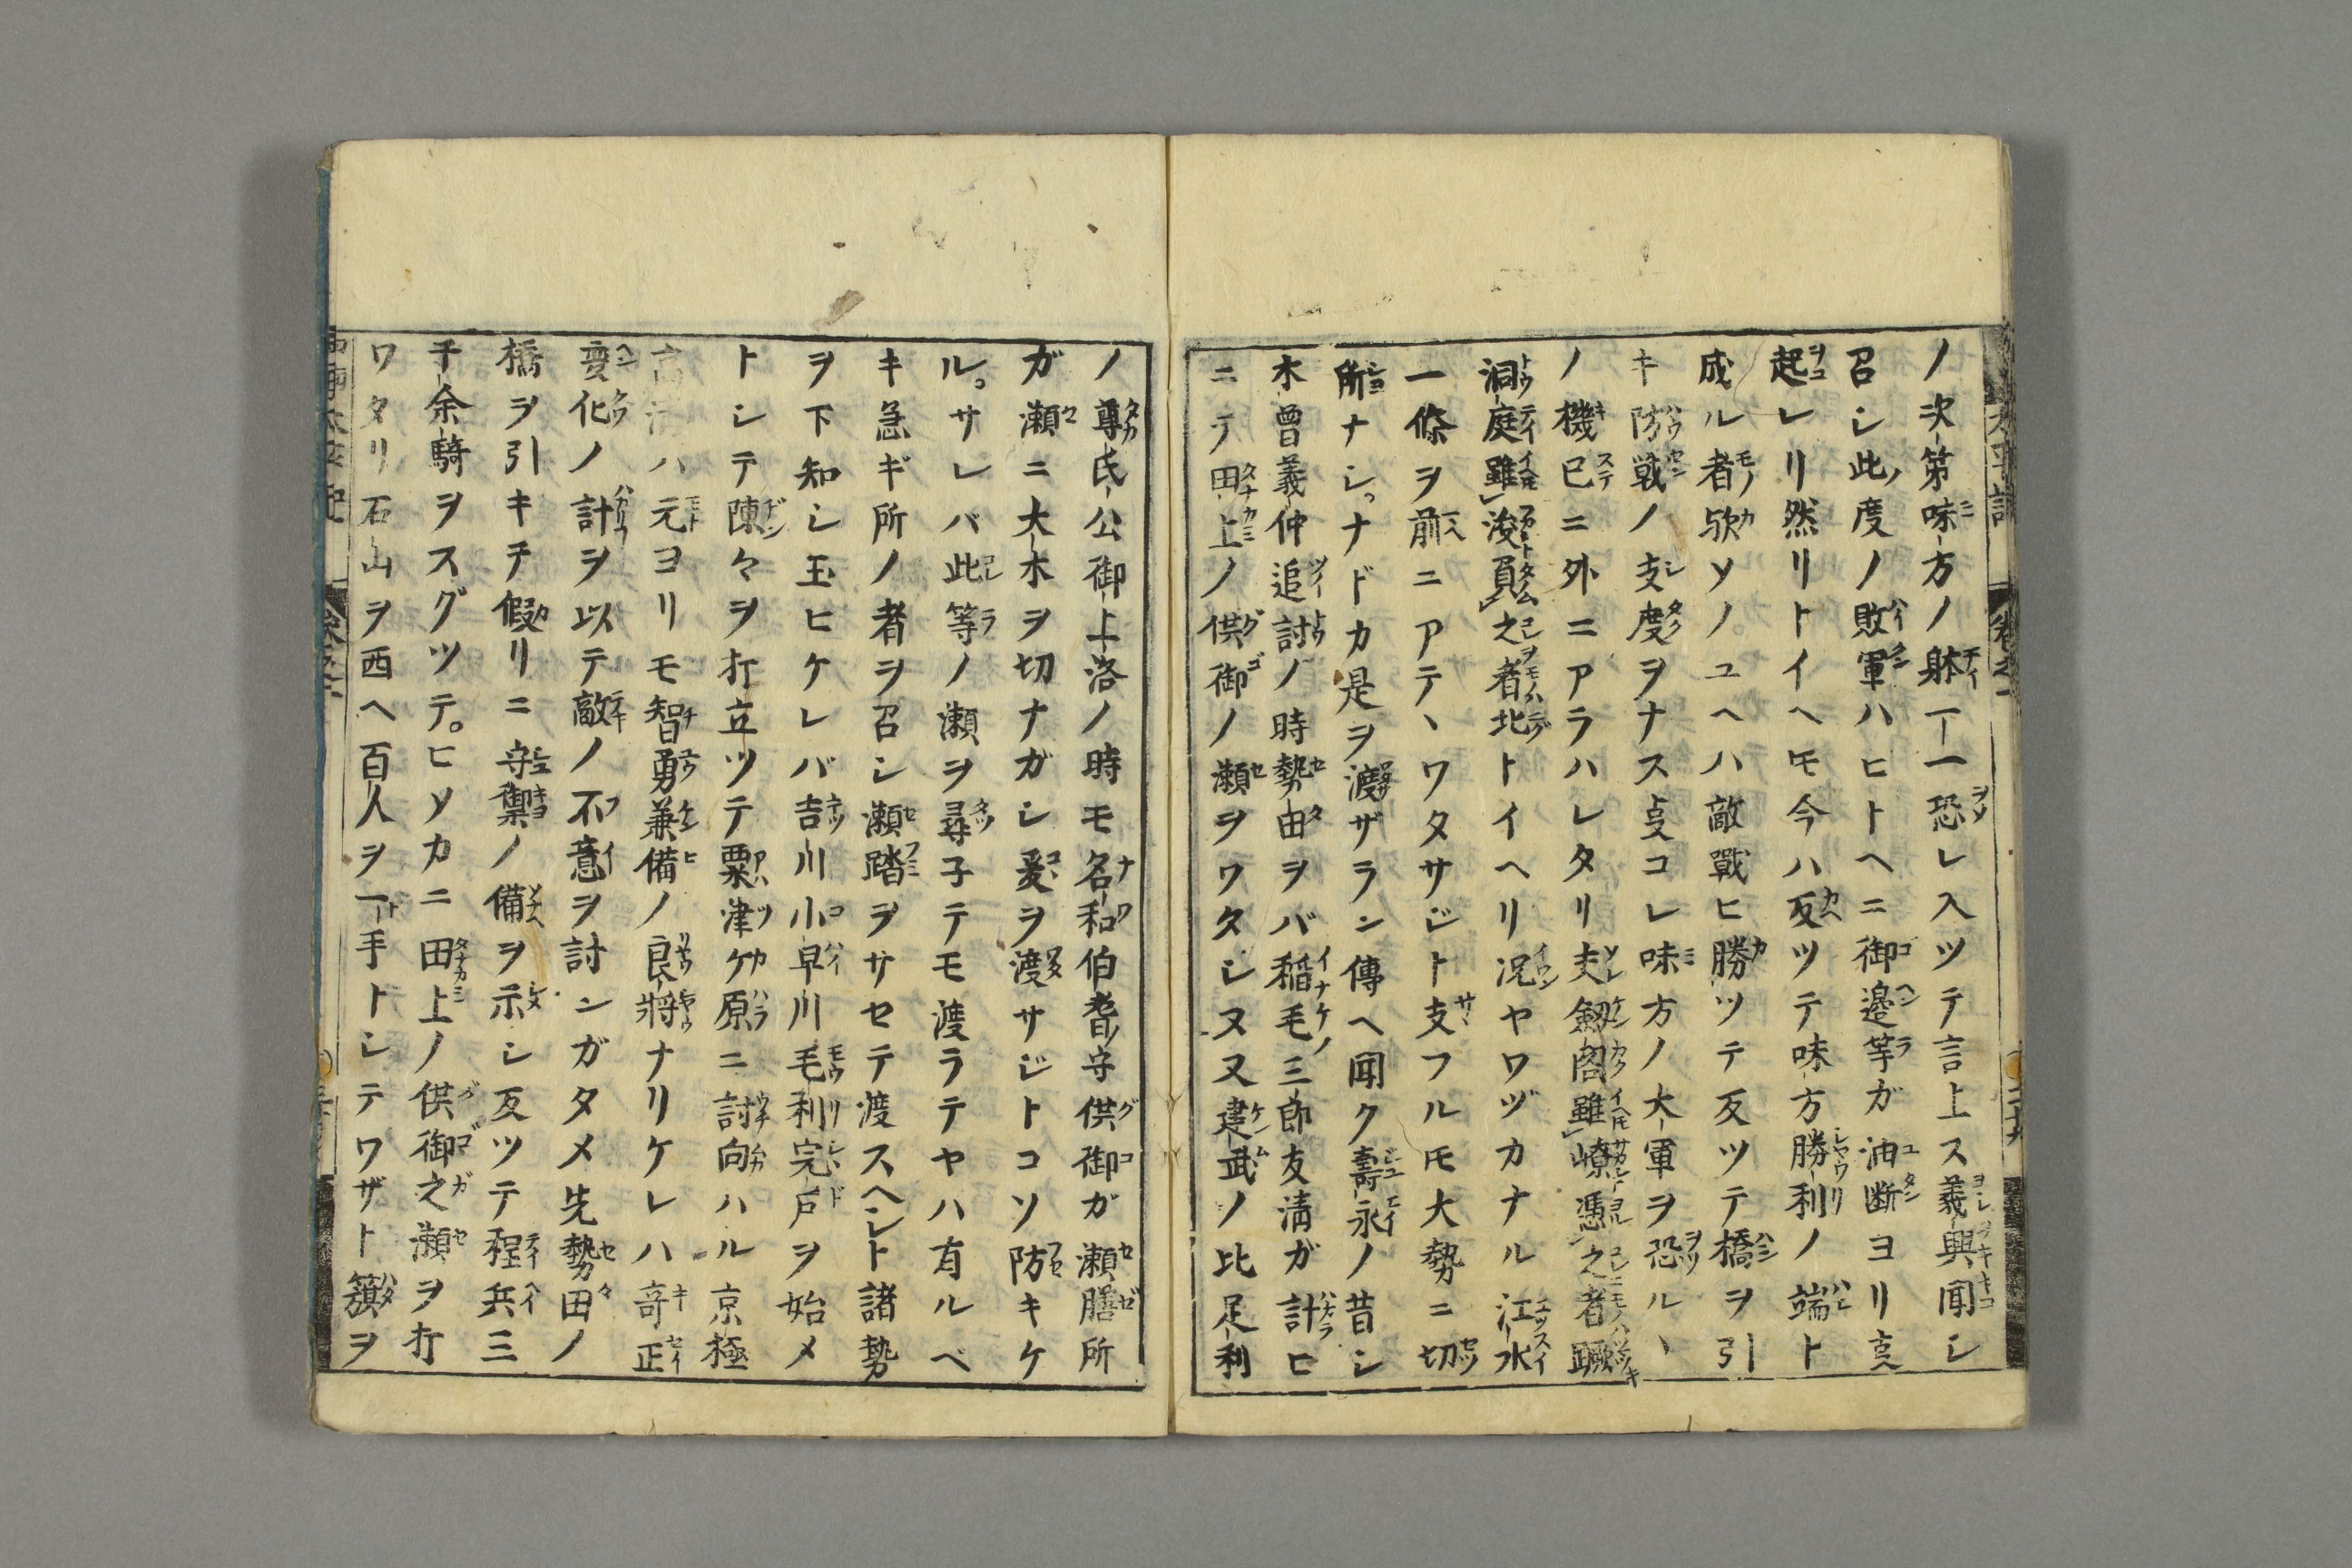 ノ次第味方ノ躰一一恐レ入ツテ言上ス義興聞シ
召シ此度ノ敗軍ハヒトヘニ御邊等ガ油断ヨリ
起レリ然リトイヘモ今ハ反ツテ味方勝利ノ端ト
成ル者欤ソノユヘハ敵戰ヒ勝ツテ反ツテ橋ヲ引
キ防戦ノ支度ヲナス㕝コレ味方ノ大軍ヲ恐ルヽ
ノ機已ニ外ニアラハレタリ夫劔閣雖嶛憑之者蹶
洞庭雖浚負之者北トイヘリ况ヤワヅカナル江水
一條ヲ前ニアテヽワタサジト支フルモ大勢ニ切
所ナシナドカ是ヲ渡ザラン傳ヘ聞ク壽永ノ昔シ
木曾義仲追討ノ時勢田ヲバ稲毛三郎友清ガ計ヒ
ニテ田上ノ供御ノ瀬ヲワタシヌ又建武ノ比足利
ノ尊氏公御上洛ノ時モ名和伯耆守供御ガ瀬膳所
ガ瀬ニ大木ヲ切ナガシ爰ヲ渡サジトコソ防キケ
ルサレバ此等ノ瀬ヲ尋子テモ渡ラテヤハ有ルベ
キ急ギ所ノ者ヲ召シ瀬踏ヲサセテ渡スヘシト諸勢
ヲ下知シ玉ヒケレバ吉川小早川毛利完戸ヲ始メ
トシテ陳々ヲ打立ツテ粟津ケ原ニ討向ハル京極
高清ハ元ヨリモ智勇兼備ノ良將ナリケレハ竒正
変化ノ計ヲ以テ敵ノ不意ヲ討ンガタメ先勢田ノ
橋ヲ引キチ假リニ守禦ノ備ヲ示シ反ツテ程兵三
千余騎ヲスグツテヒソカニ田上ノ供御之瀬ヲ打
ワタリ石山ヲ西ヘ百人ヲ一手トシテワザト籏ヲ